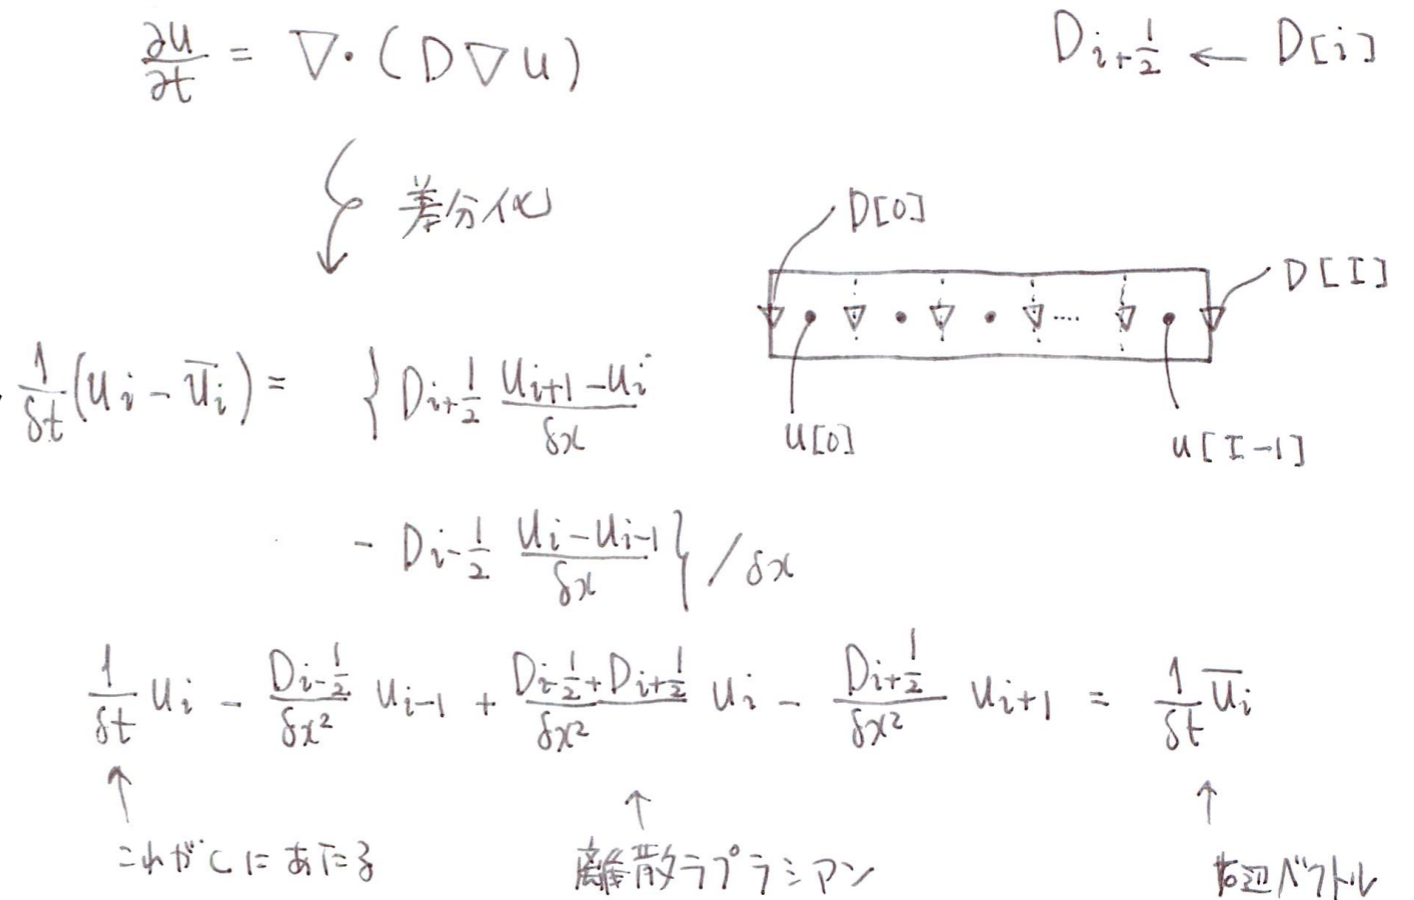 ∂u/∂t = ∇·(D∇u)
D_{i+1/2} ← D[i]
差分化
D[0]
D[I]
u[0]
u[I-1]
1/δt (u_i - ū_i) = { D_{i+1/2} (u_{i+1} - u_i)/δx
- D_{i-1/2} (u_i - u_{i-1})/δx } / δx
1/δt u_i - D_{i-1/2}/δx² u_{i-1} + (D_{i-1/2} + D_{i+1/2})/δx² u_i - D_{i+1/2}/δx² u_{i+1} = 1/δt ū_i
↑ ↑ ↑
これがCにあたる 離散ラプラシアン 右辺ベクトル